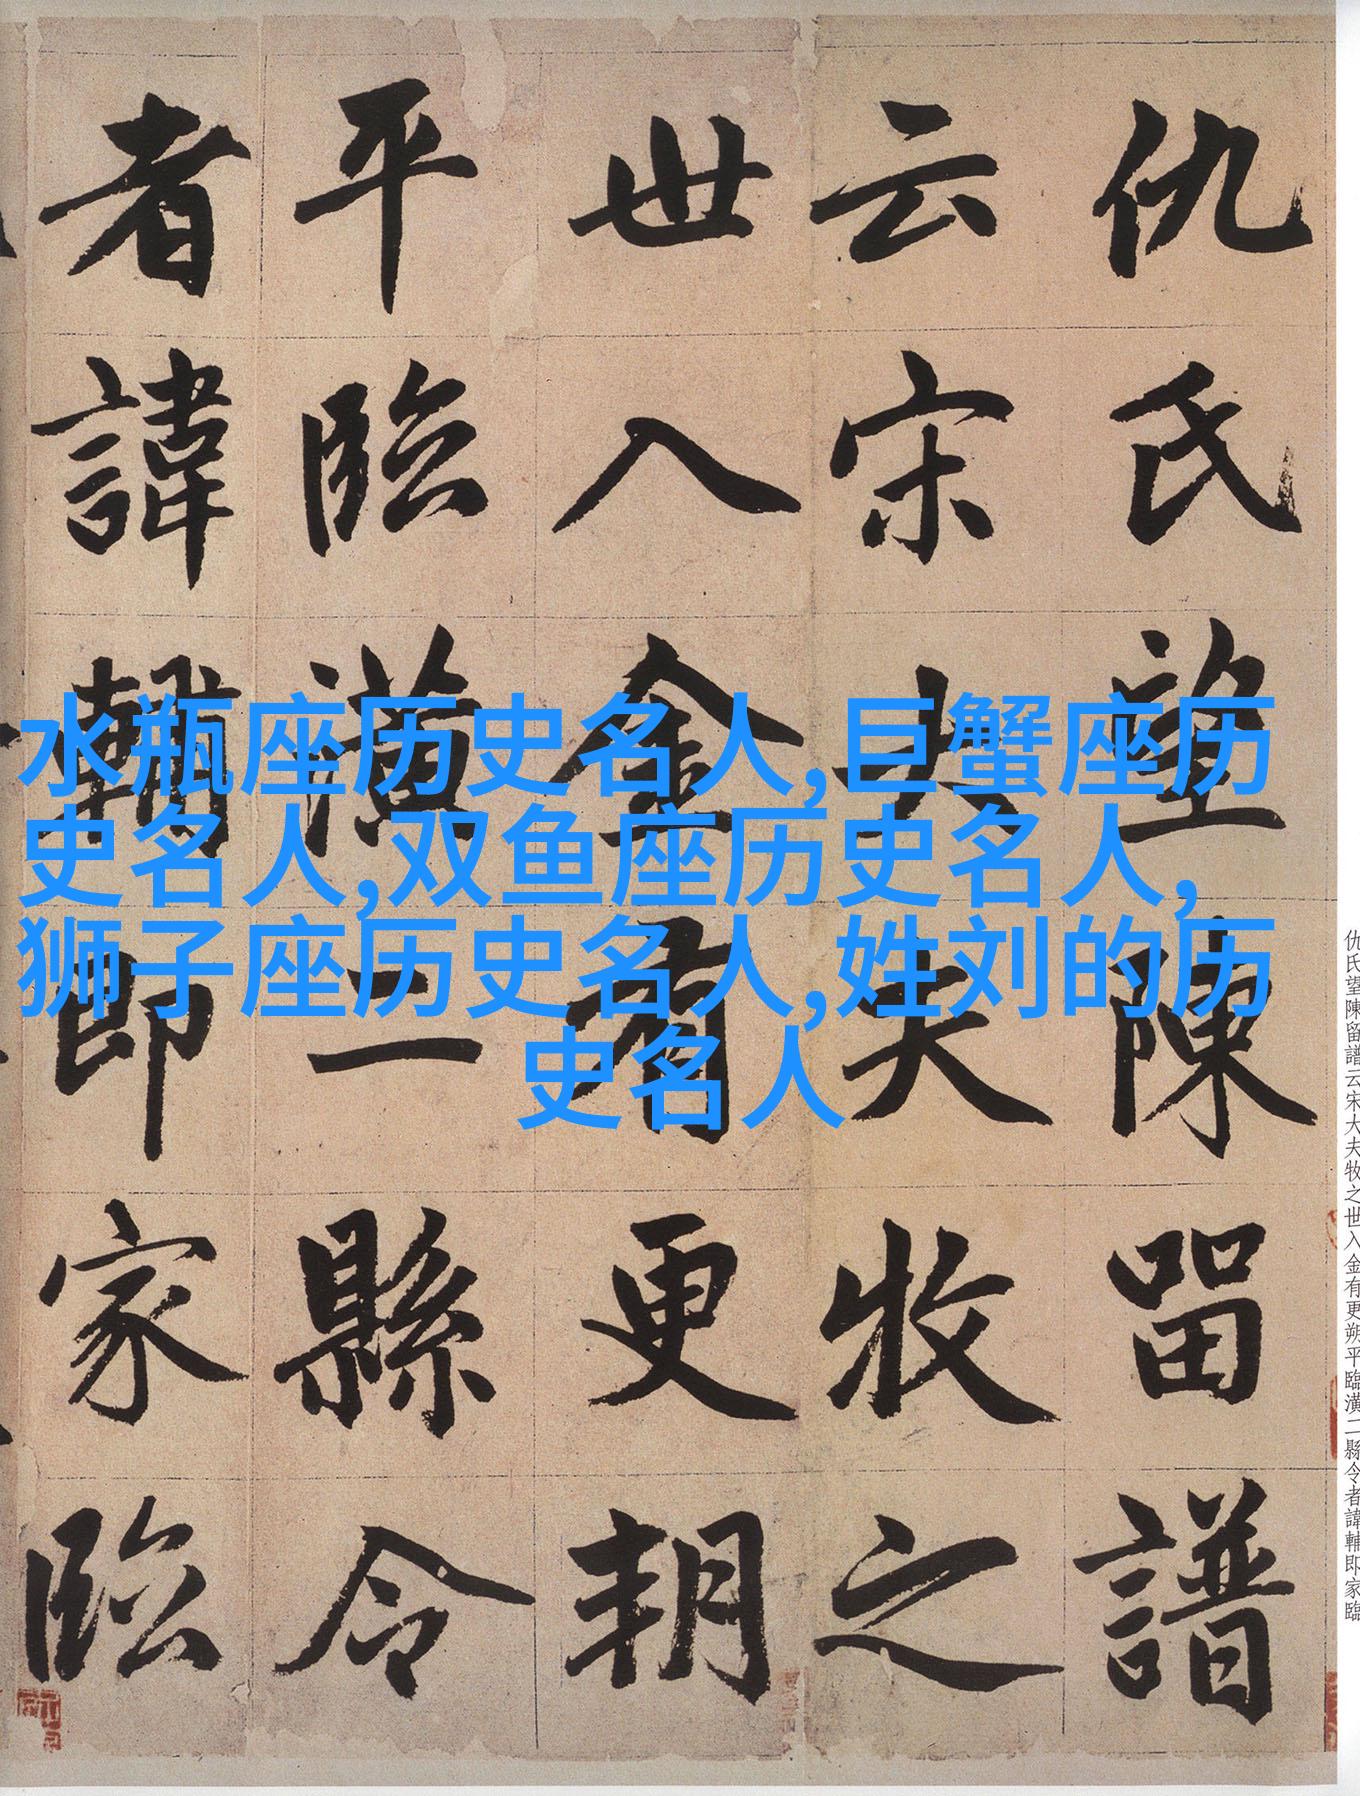 仇氏望陳留譜
云宋大夫牧之
世入金有更朔
平臨潢二縣令
者諱輔即家臨
水瓶座历史名人,巨蟹座历
史名人,双鱼座历史名人,
狮子座历史名人,姓刘的历
史名人
仇氏望陳留譜云宋大夫牧之世入金有更朔平臨潢二縣令者諱輔即家臨